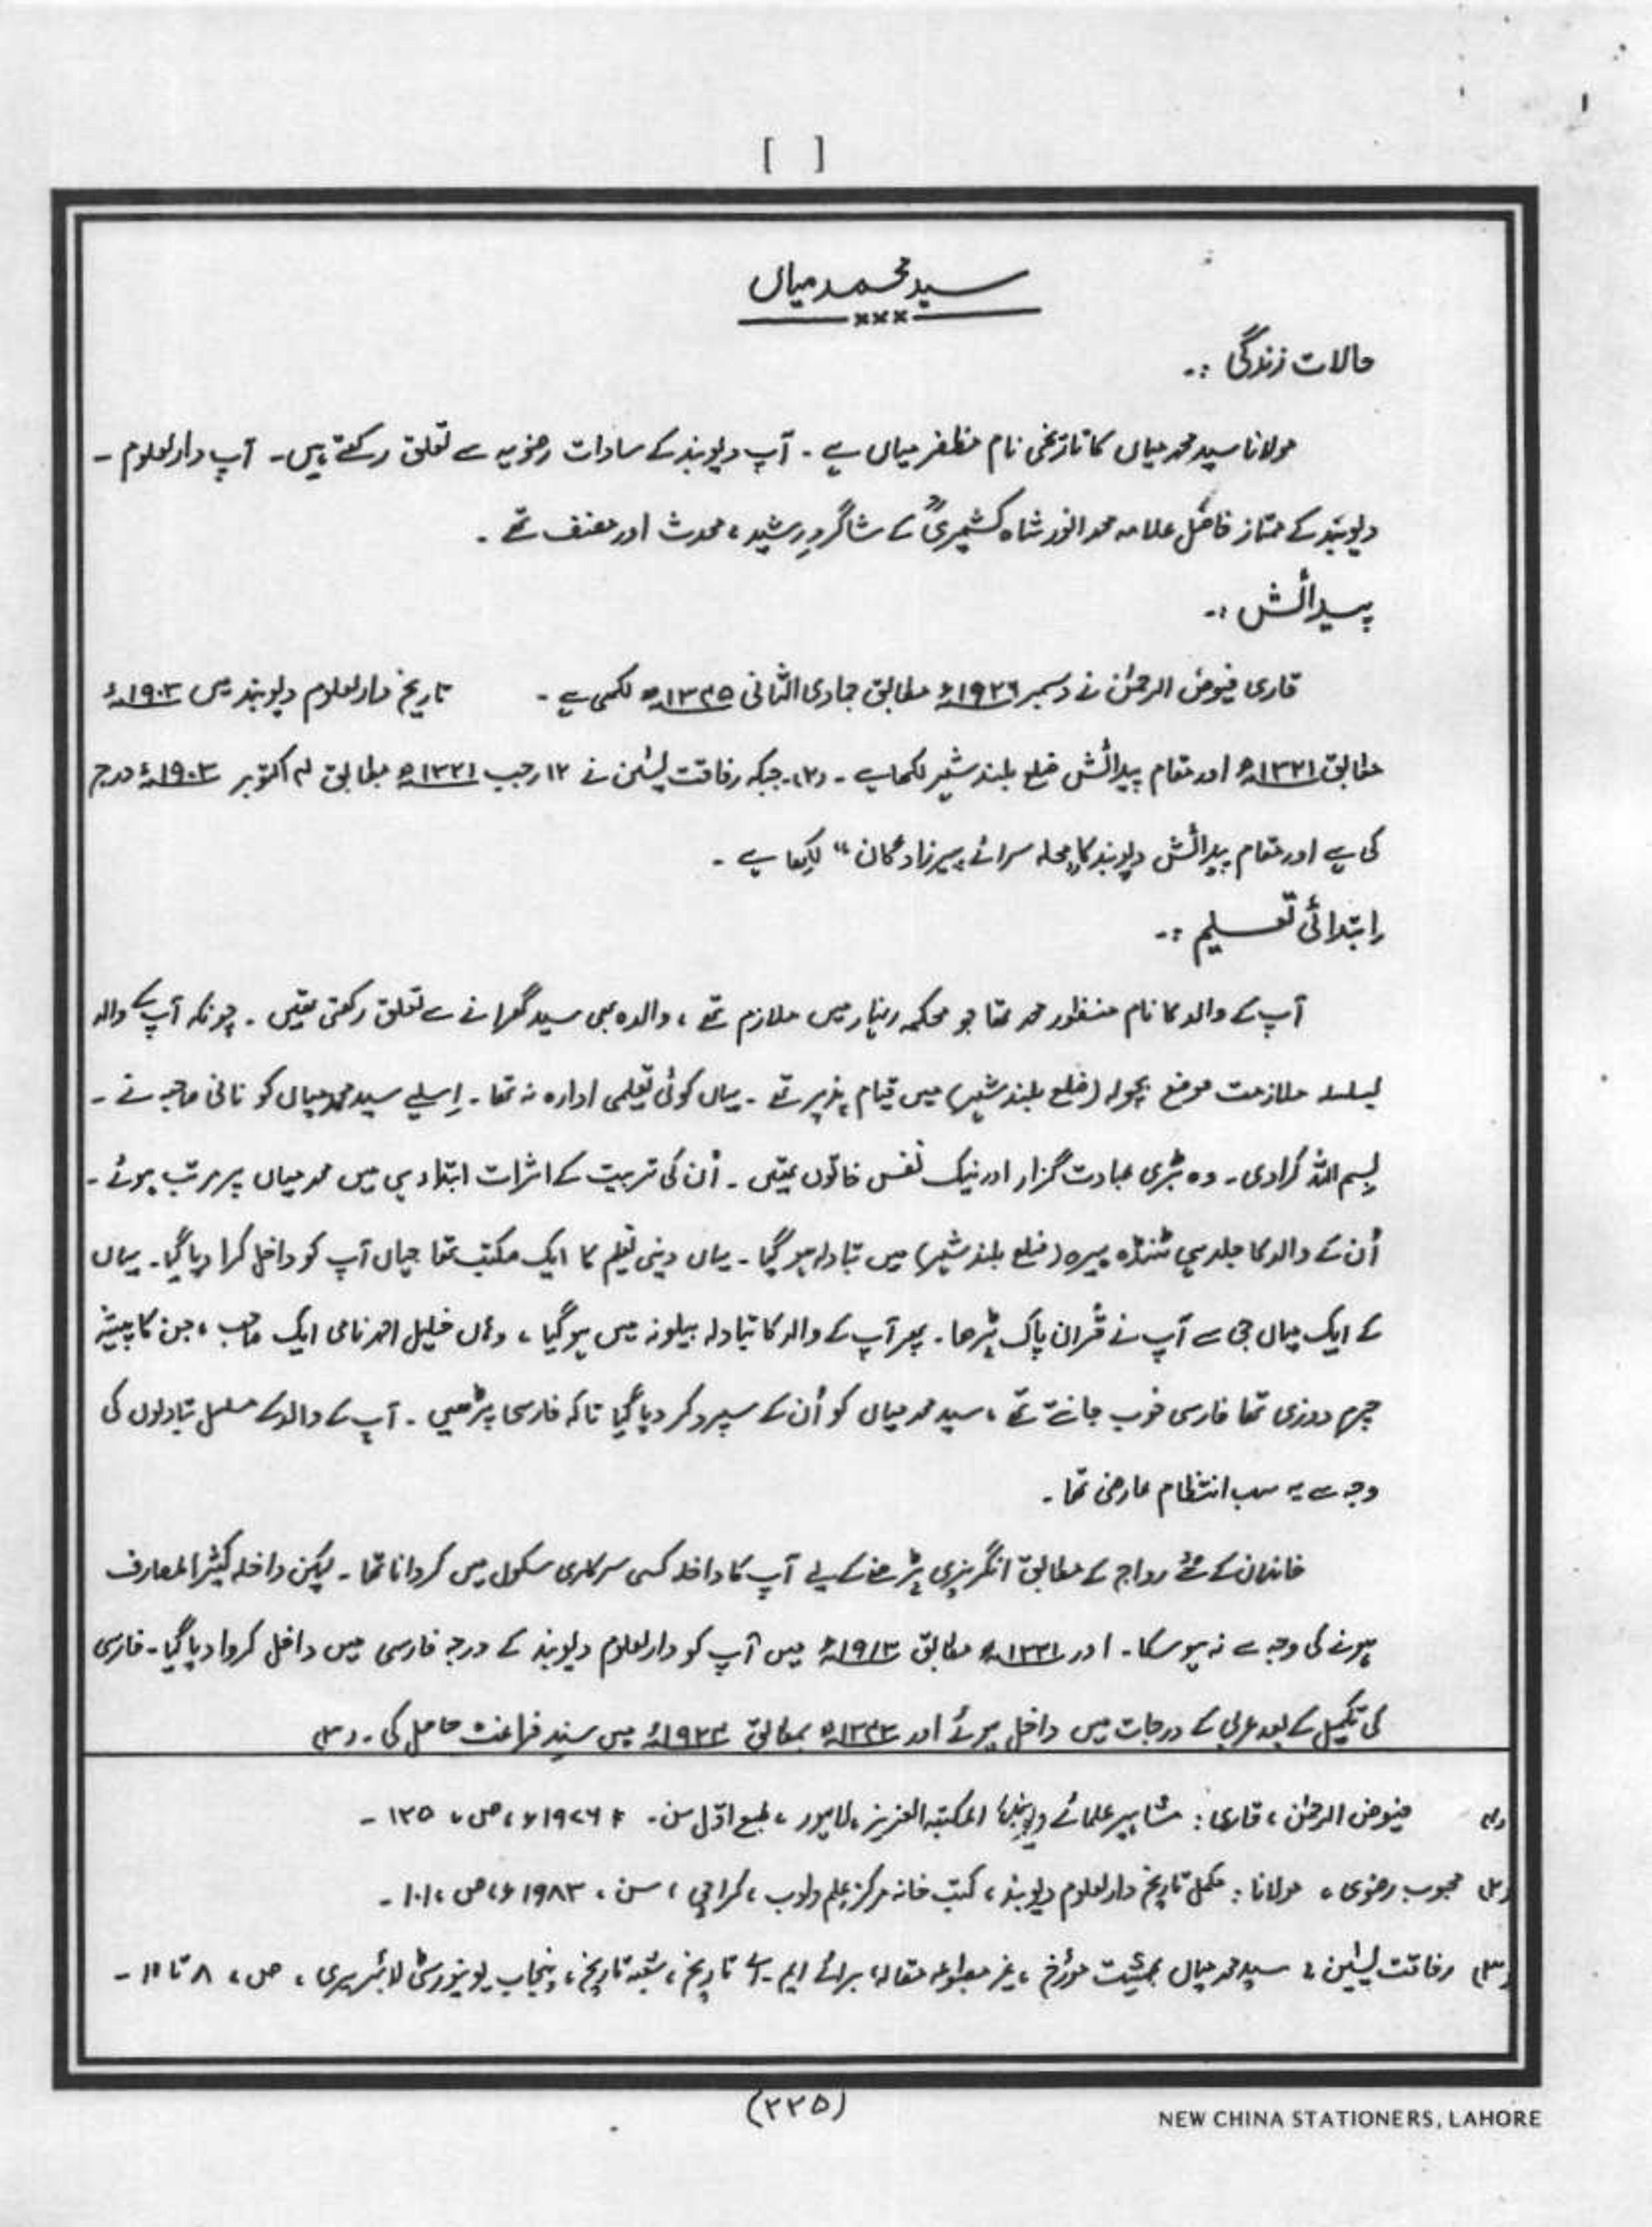 [ ]
سید محمد میاں
×××
حالات زندگی :۔
مولانا سید محمد میاں کا تاریخی نام مظفر میاں ہے ۔ آپ دیوبند کے سادات رضویہ سے تعلق رکھتے ہیں۔ آپ دارالعلوم ۔
دیوبند کے ممتاز فاضل علامہ محمد انور شاہ کشمیریؒ کے شاگردِ رشید ، محدث اور مصنف تھے ۔
پیدائش :۔
قاری فیوض الرحمٰن نے دسمبر ۱۹۲۶ء مطابق جمادی الثانی ۱۳۴۵ھ لکھی ہے ۔ تاریخ دارالعلوم دیوبند میں ۱۹۰۳ء
مطابق ۱۳۲۱ھ اور مقام پیدائش ضلع بلند شہر لکھا ہے ۔ (۲)۔ جبکہ رفاقت یٰسین نے ۱۲ رجب ۱۳۲۱ھ بمطابق ۴ اکتوبر ۱۹۰۳ء درج
کی ہے اور مقام پیدائش دیوبند کا "محلہ سرائے پیرزادگان" لکھا ہے ۔
اِبتدائی تعلیم :۔
آپ کے والد کا نام منظور محمد تھا جو محکمہ انہار میں ملازم تھے ، والدہ بھی سید گھرانے سے تعلق رکھتی تھیں ۔ چونکہ آپ کے والد
بسلسلہ ملازمت موضع پچولہ (ضلع بلند شہر) میں قیام پذیر تھے ۔ یہاں کوئی تعلیمی ادارہ نہ تھا ۔ اِسلیے سید محمد میاں کو نانی صاحبہ نے ۔
بِسم اللہ کرادی ۔ وہ بڑی عبادت گزار اور نیک نفس خاتون تھیں ۔ اُن کی تربیت کے اثرات ابتداء ہی میں محمد میاں پر مرتب ہوئے ۔
اُن کے والد کا جلد ہی ٹنڈہ پیرہ (ضلع بلند شہر) میں تبادلہ ہو گیا ۔ یہاں دینی تعلیم کا ایک مکتب تھا جہاں آپ کو داخل کرا دیا گیا ۔ یہاں
کے ایک میاں جی سے آپ نے قُرآن پاک پڑھا ۔ پھر آپ کے والد کا تبادلہ بیلونہ میں ہو گیا ، وہاں خلیل احمد نامی ایک صاحب ، جن کا پیشہ
چرم دوزی تھا فارسی خوب جانتے تھے ، سید محمد میاں کو اُن کے سپرد کر دیا گیا تاکہ فارسی پڑھیں ۔ آپ کے والد کے مسلسل تبادلوں کی
وجہ سے یہ سب انتظام عارضی تھا ۔
خاندان کے رواج کے مطابق انگریزی پڑھنے کے لیے آپ کا داخلہ کسی سرکاری سکول میں کروانا تھا ۔ لیکن داخلہ کثیر المعارف
ہونے کی وجہ سے نہ ہو سکا ۔ اور ۱۳۳۱ھ مطابق ۱۹۱۳ء میں آپ کو دارالعلوم دیوبند کے درجہ فارسی میں داخل کروا دیا گیا ۔ فارسی
کی تکمیل کے بعد عربی کے درجات میں داخل ہوئے اور ۱۳۴۳ھ بمطابق میں سندِ فراغت حاصل کی ۔ (۳)
(۱) فیوض الرحمٰن ، قاری : مشاہیر علمائے دیوبند ، المکتبہ العزیز ، لاہور ، طبع اوّل سن ۔ ۱۹۷۶ء ، ص ، ۱۳۵ ۔
(۲) محبوب رضوی ، مولانا : مکمل تاریخ دارالعلوم دیوبند ، کتب خانہ مرکز علم و ادب ، کراچی ، سن ، ۱۹۸۳ء ، ص ، ۱۰۱ ۔
(۳) رفاقت یٰسین ، سید محمد میاں بحیثیت مؤرخ ، غیر مطبوعہ مقالہ ، برائے ایم ۔ اے تاریخ ، شعبہ تاریخ ، پنجاب یونیورسٹی لائبریری ، ص ، ۸ تا ۱۱ ۔
(۲۲۵)
NEW CHINA STATIONERS, LAHORE